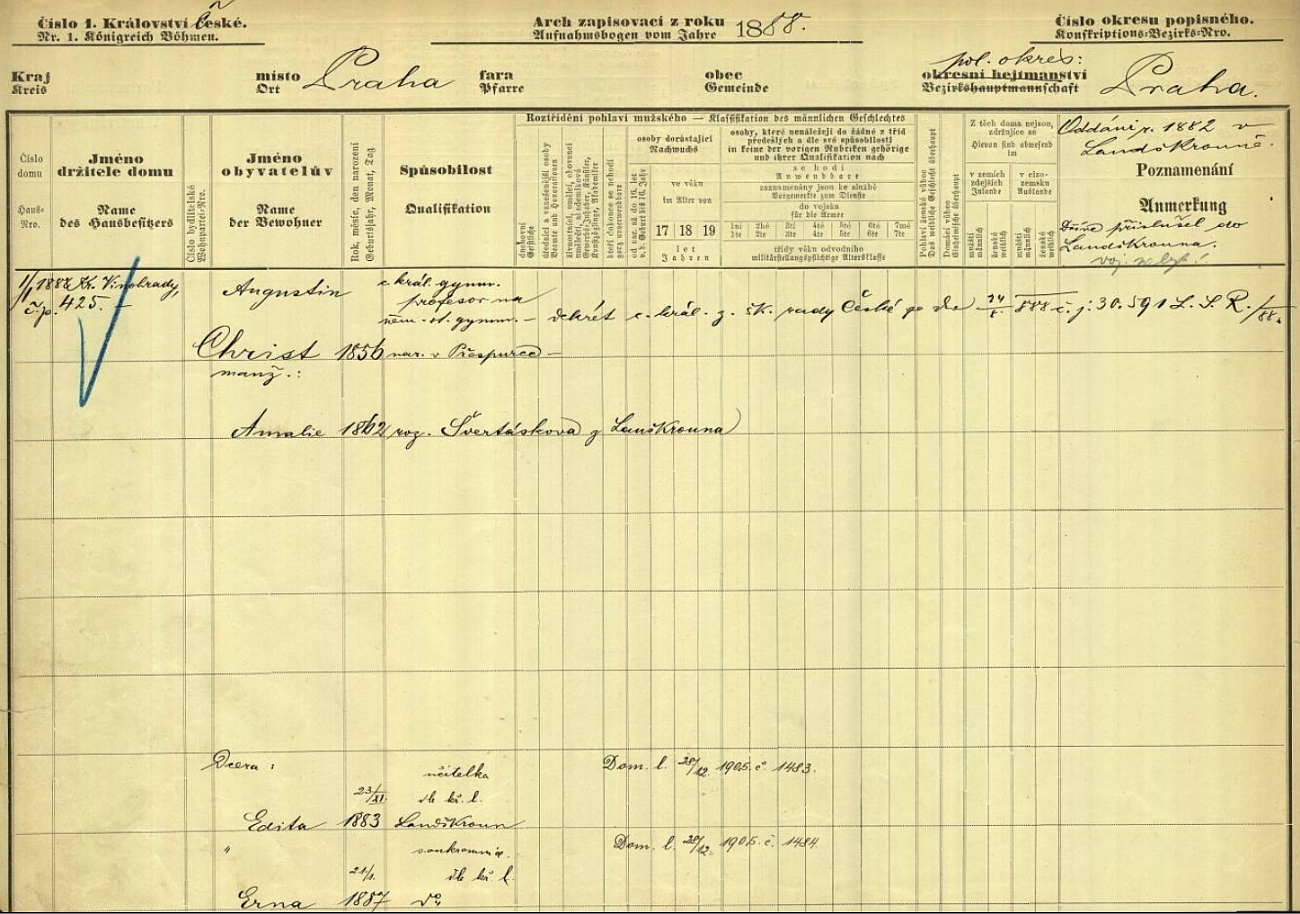 Číslo 1. Království České.
Nr. 1. Königreich Böhmen.
Arch zapisovací z roku 1888.
Aufnahmsbogen vom Jahre
Číslo okresu popisného.
Konskriptions-Bezirks-Nro.
Kraj
Kreis
místo Praha
Ort
fara
Pfarre
obec
Gemeinde
pol. okres:
okresní hejtmanství Praha.
Bezirkshauptmannschaft
Číslo domu
Haus-Nro.
Jméno
držitele domu
Name
des Hausbesitzers
Číslo bydlitelské
Wohnpartei-Nro.
Jméno
obyvatelův
Name
der Bewohner
Rok, měsíc, den narození
Geburtsjahr, Monat, Tag
Spůsobilost
Qualifikation
Roztřídění pohlaví mužského — Klassifikation des männlichen Geschlechtes
duchovní
Geistliche
osoby dorůstající
Nachwuchs
ve věku
im Alter von
17 18 19
let
Jahren
osoby, které nenáležejí do žádné z tříd
předešlých a dle své spůsobilosti
in keine der vorigen Rubriken gehörige
und ihrer Qualifikation nach
se hodí
Anwendbare
zaznamenány jsou ke službě
Vorgemerkte zum Dienste
do vojska
für die Armee
1ní 2hé 3tí 4té 5té 6té 7mé
1te 2te 3te 4te 5te 6te 7te
třídy věku odvodního
militärstellungspflichtige Altersklasse
Pohlaví ženské vůbec
Das weibliche Geschlecht überhaupt
Domácí vůbec
Einheimische überhaupt
Z těch doma nejsou,
zdržujíce se
Hievon sind abwesend
im
v zemích
zdejších
Inlande
v cizo-
zemsku
Auslande
mužští
männlich
ženské
weiblich
mužští
männlich
ženské
weiblich
Oddáni r. 1882 v
Landškrouně.
Poznamenání
Anmerkung
příslušel do
Landškrouna.
Kr. Vinohrady,
č.p. 425.
Augustin
c. král. gymn.
profesor na
něm. st. gymn. — dekrét c. král. z. šk. rady České
č. j. 30.591 L. S. R. /88.
Christ 1856 nar. v Prešpurce —
manž.:
Amalie 1862 roz. Švertáskova z Lanškrouna
Dcera : učitelka Dom. l. 28/12. 1905 č. 1483.
23/XI. dle kř. l.
Edita 1883 Landškroun
" soukromnice. Dom. l. 28/12. 1905. č. 1484
21/1. dle kř. l.
Erna 1887 dto